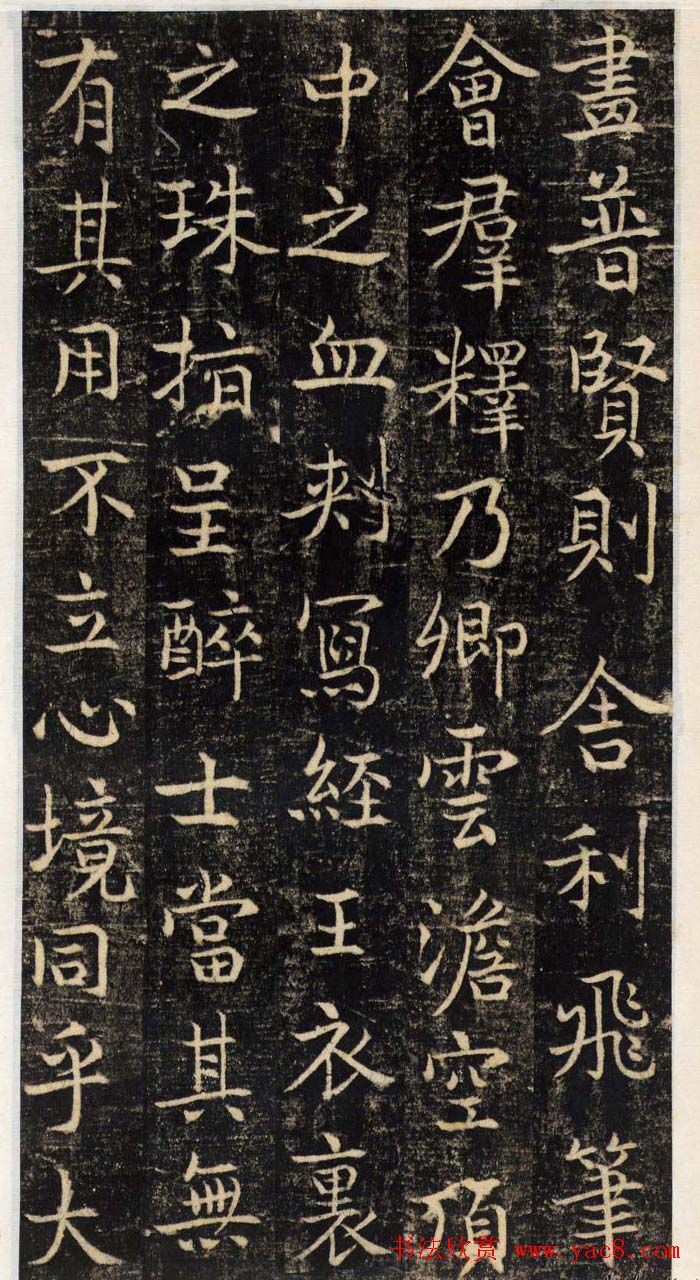 畫普賢則舍利飛筆
會羣釋乃卿雲澹空頂
中之血刾寫經王衣裏
之珠指呈醉士當其無
有其用不立心境同乎大
书法欣赏 www.yac8.com